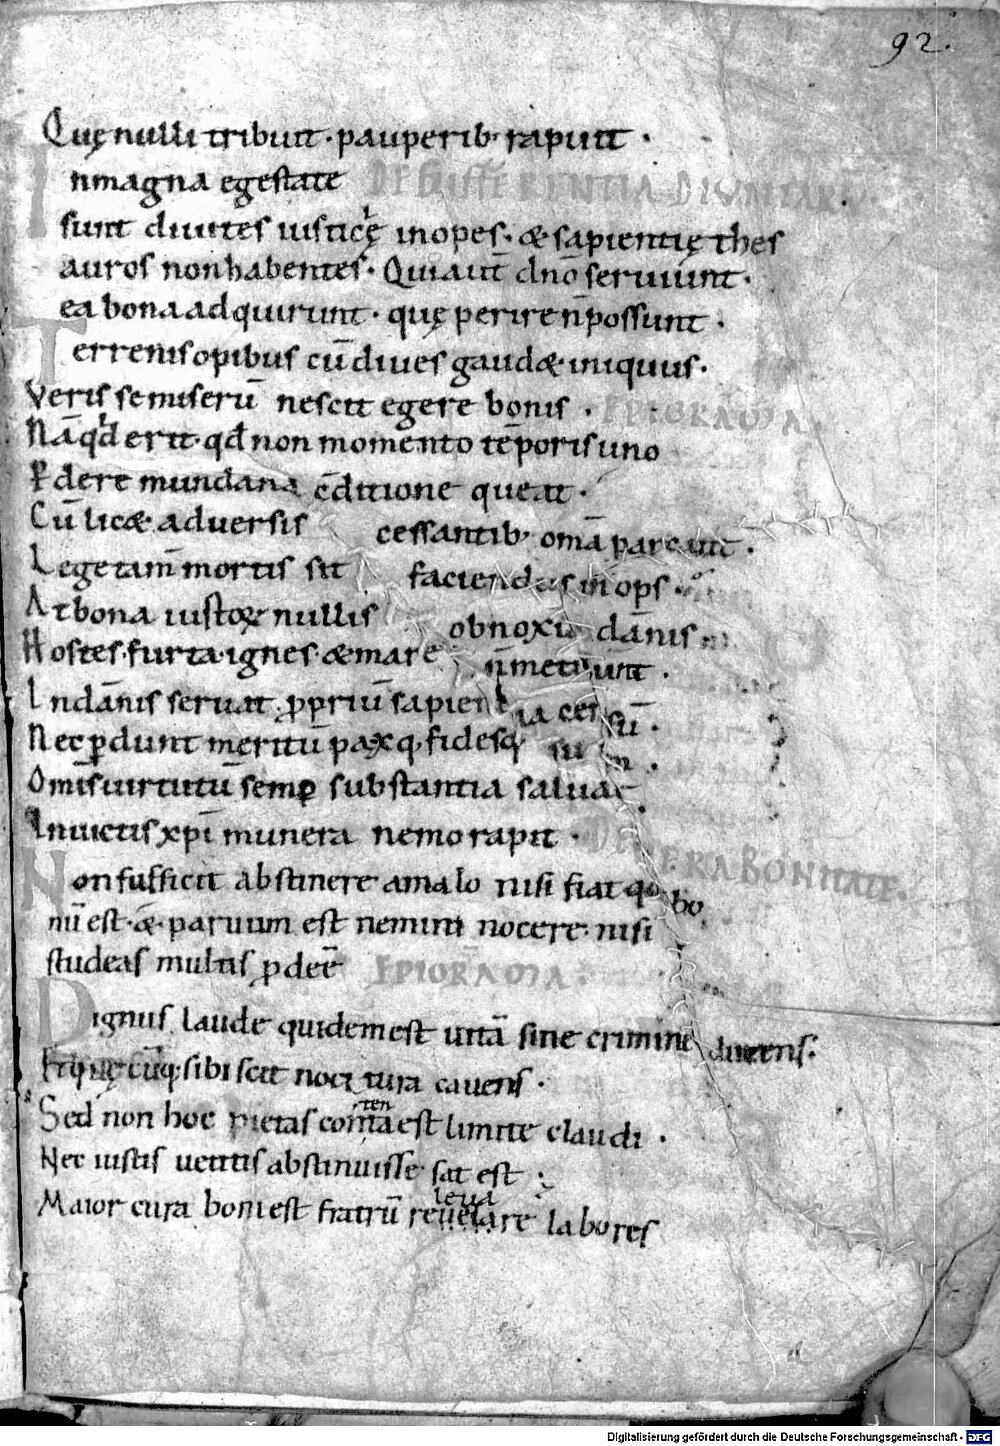 92.
Quę nulli tribuit · pauperib; rapuit ·
In magna egestate DE DIFFERENTIA DIVITIARV
sunt diuites iusticę inopes · & sapientię thes
auros non habentes · Qui aut̄ dn̄o seruiunt ·
ea bona adquirunt · quę perire n̄ possunt ·
Terrenis opibus cū diues gaud& iniquus ·
Veris se miserū nescit egere bonis · EPIGRAMA
Nā qd̄ erit · qd̄ non momento tēporis uno
Ꝑdere mundana c̄ditione queat ·
Cū lic& aduersis cessantib; om̄a parcant ·
Lege tam̄ mortis sit faciendus inops ·
At bona iustoꝝ nullis obnoxia dānis
Hostes · furta · ignes · & mare n̄ metuunt ·
In dānis seruat ꝓpriū sapientia censū ·
Nec ꝑdunt meritū pax q; fidesq;
Om̄s uirtutū semꝑ substantia saluat
Inuictis xp̄i munera nemo rapit · DE VERA BONITATE ·
Non sufficit abstinere a malo nisi fiat qd̄ bo
nū est · & paruum est nemini nocere · nisi
studeas multis ꝓdeē EPIGRAMA ·
Dignus laude quidem est uitā sine crimine ducens ·
sibi scit nocitura cauens ·
Sed non hoc pietas contenta est limite claudi ·
Nec iustis uetitis abstinuisse sat est ·
leua
Maior cura boni est fratrū reuelare labores
Digitalisierung gefördert durch die Deutsche Forschungsgemeinschaft - DFG